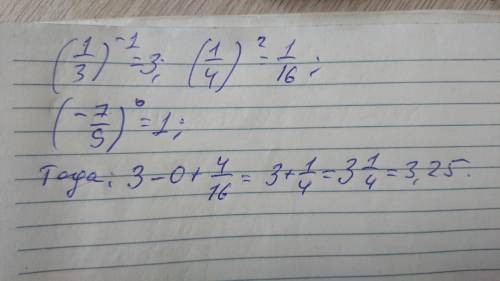 (1/3)^-1 = 3; (1/4)^2 = 1/16;
(-7/9)^0 = 1;
Тогда: 3 - 0 + 4/16 = 3 + 1/4 = 3 1/4 = 3,25.